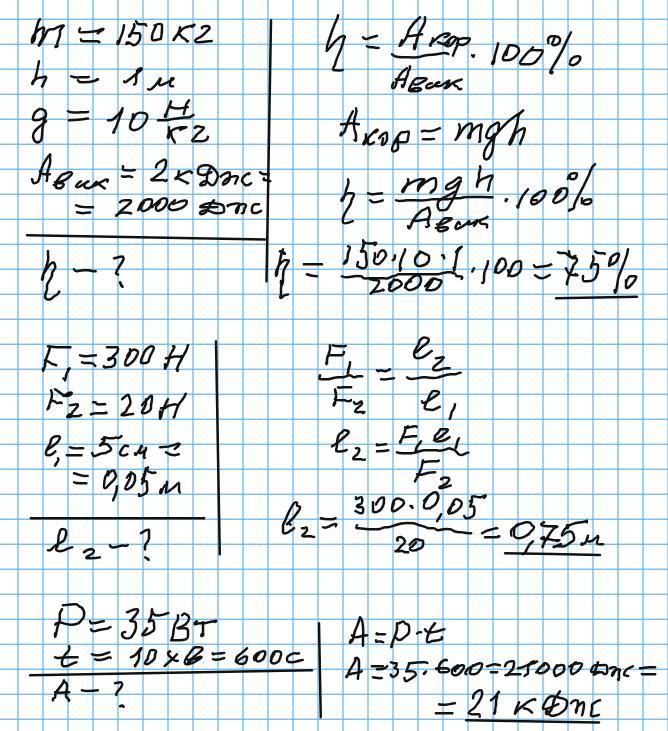 m = 150 кг
h = 1 м
g = 10 Н/кг
Aвик = 2 кДж =
= 2000 Дж
η - ?
η = Aкор/Aвик · 100%
Aкор = mgh
η = mgh/Aвик · 100%
η = 150·10·1/2000 · 100 = 75%
F₁ = 300 Н
F₂ = 20 Н
l₁ = 5 см =
= 0,05 м
l₂ - ?
F₁/F₂ = l₂/l₁
l₂ = F₁l₁/F₂
l₂ = 300·0,05/20 = 0,75 м
P = 35 Вт
t = 10 хв = 600 с
A - ?
A = P·t
A = 35·600 = 21000 Дж =
= 21 кДж